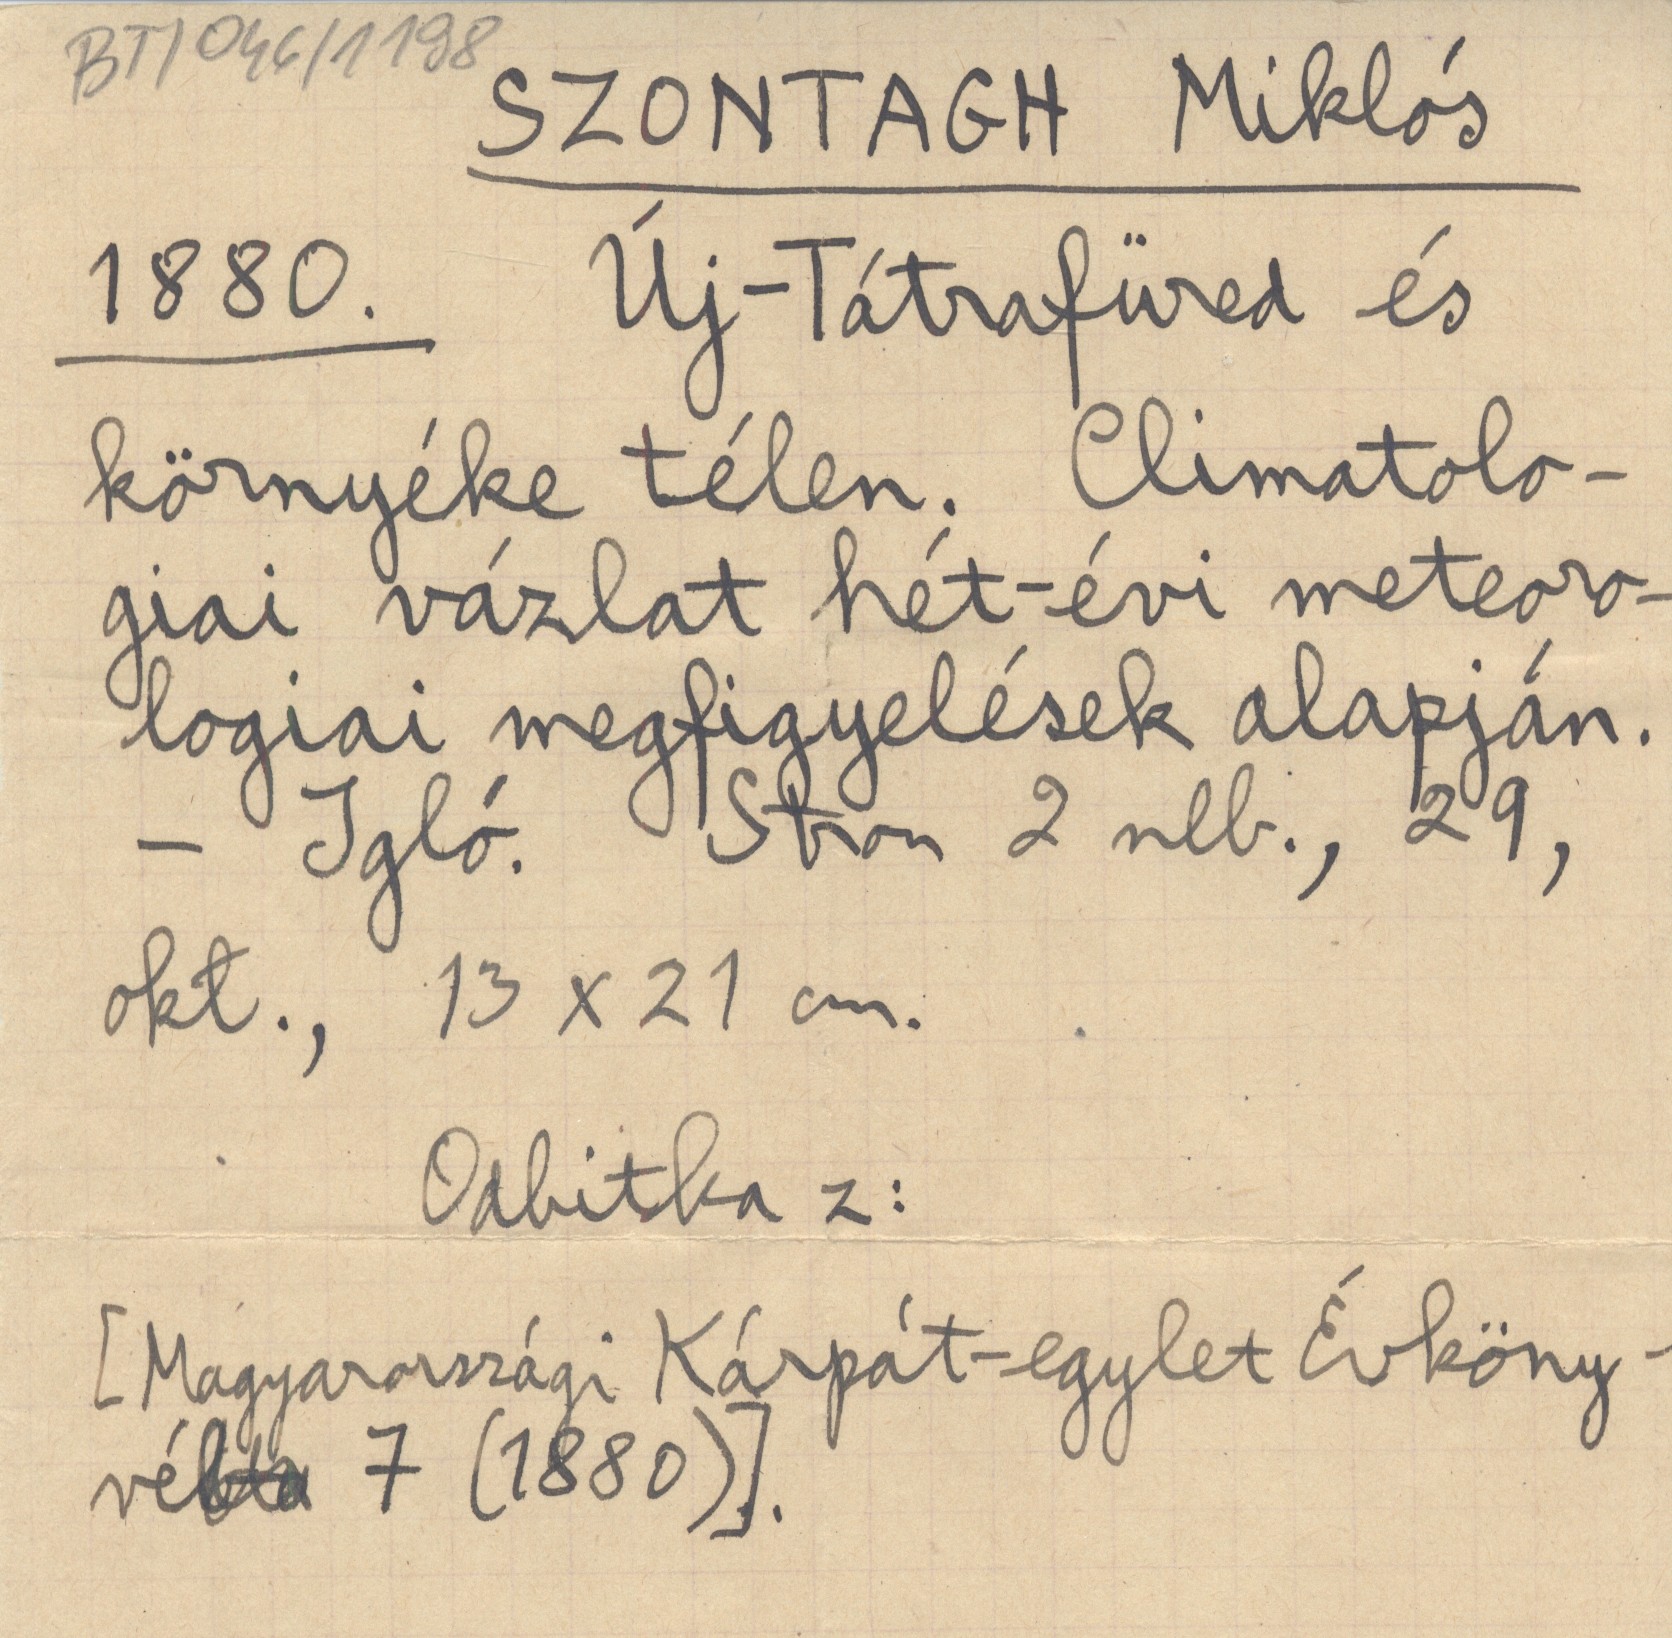 BT/046/1198
SZONTAGH Miklós
1880. Új-Tátrafüred és
környéke télen. Climatolo-
giai vázlat hét-évi meteoro-
logiai megfigyelések alapján.
- Igló. Stron 2 nlb., 29,
okt., 13 x 21 cm.
Odbitka z:
[Magyarországi Kárpát-egylet Évköny-
7 (1880)].